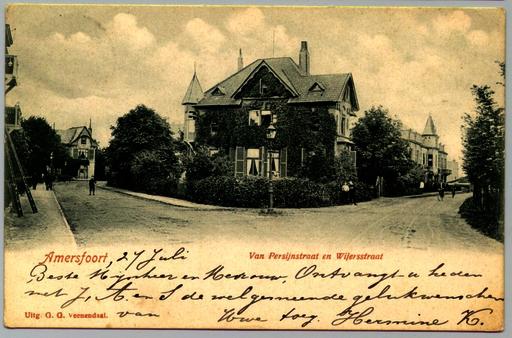 Amersfoort, 27 Juli
Van Persijnstraat en Wijersstraat
Beste Mijnheer en Mevrouw, Ontvangt u heden
met J, A en S de welgemeende gelukwenschen
van Uwe toeg. Hermine K.
Uitg. G. G. Veenendaal.